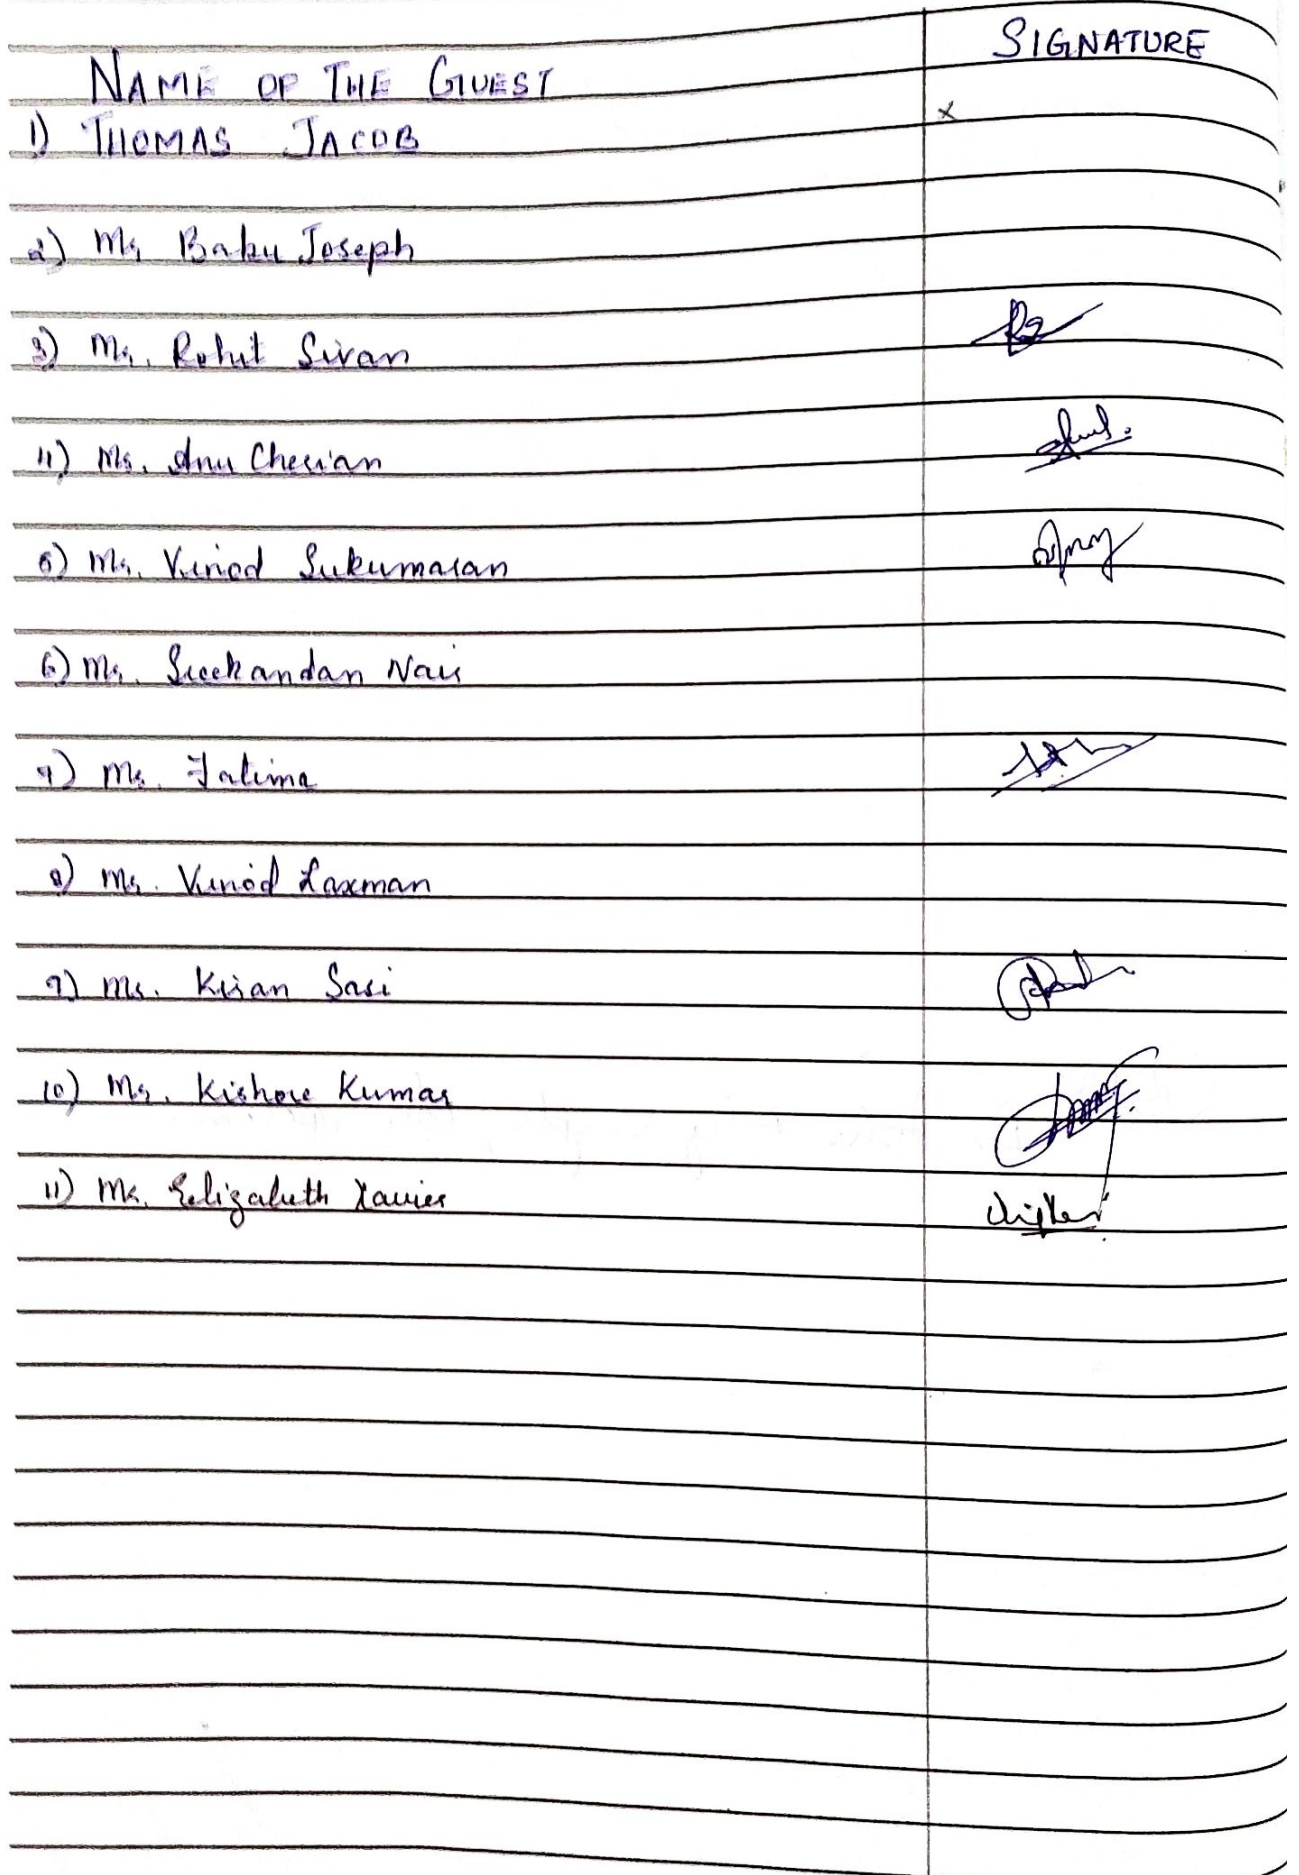 SIGNATURE
NAME OF THE GUEST
1) THOMAS JACOB x
2) Mr Babu Joseph
3) Mr. Rohit Sivan
4) Ms. Anu Cherian
5) Mr. Vinod Sukumaran
6) Mr. Sreekandan Nair
7) Ms. Fatima
8) Mr. Vinod Laxman
9) Ms. Kiran Sasi
10) Mr. Kishore Kumar
11) Ms. Elizabeth Xavier